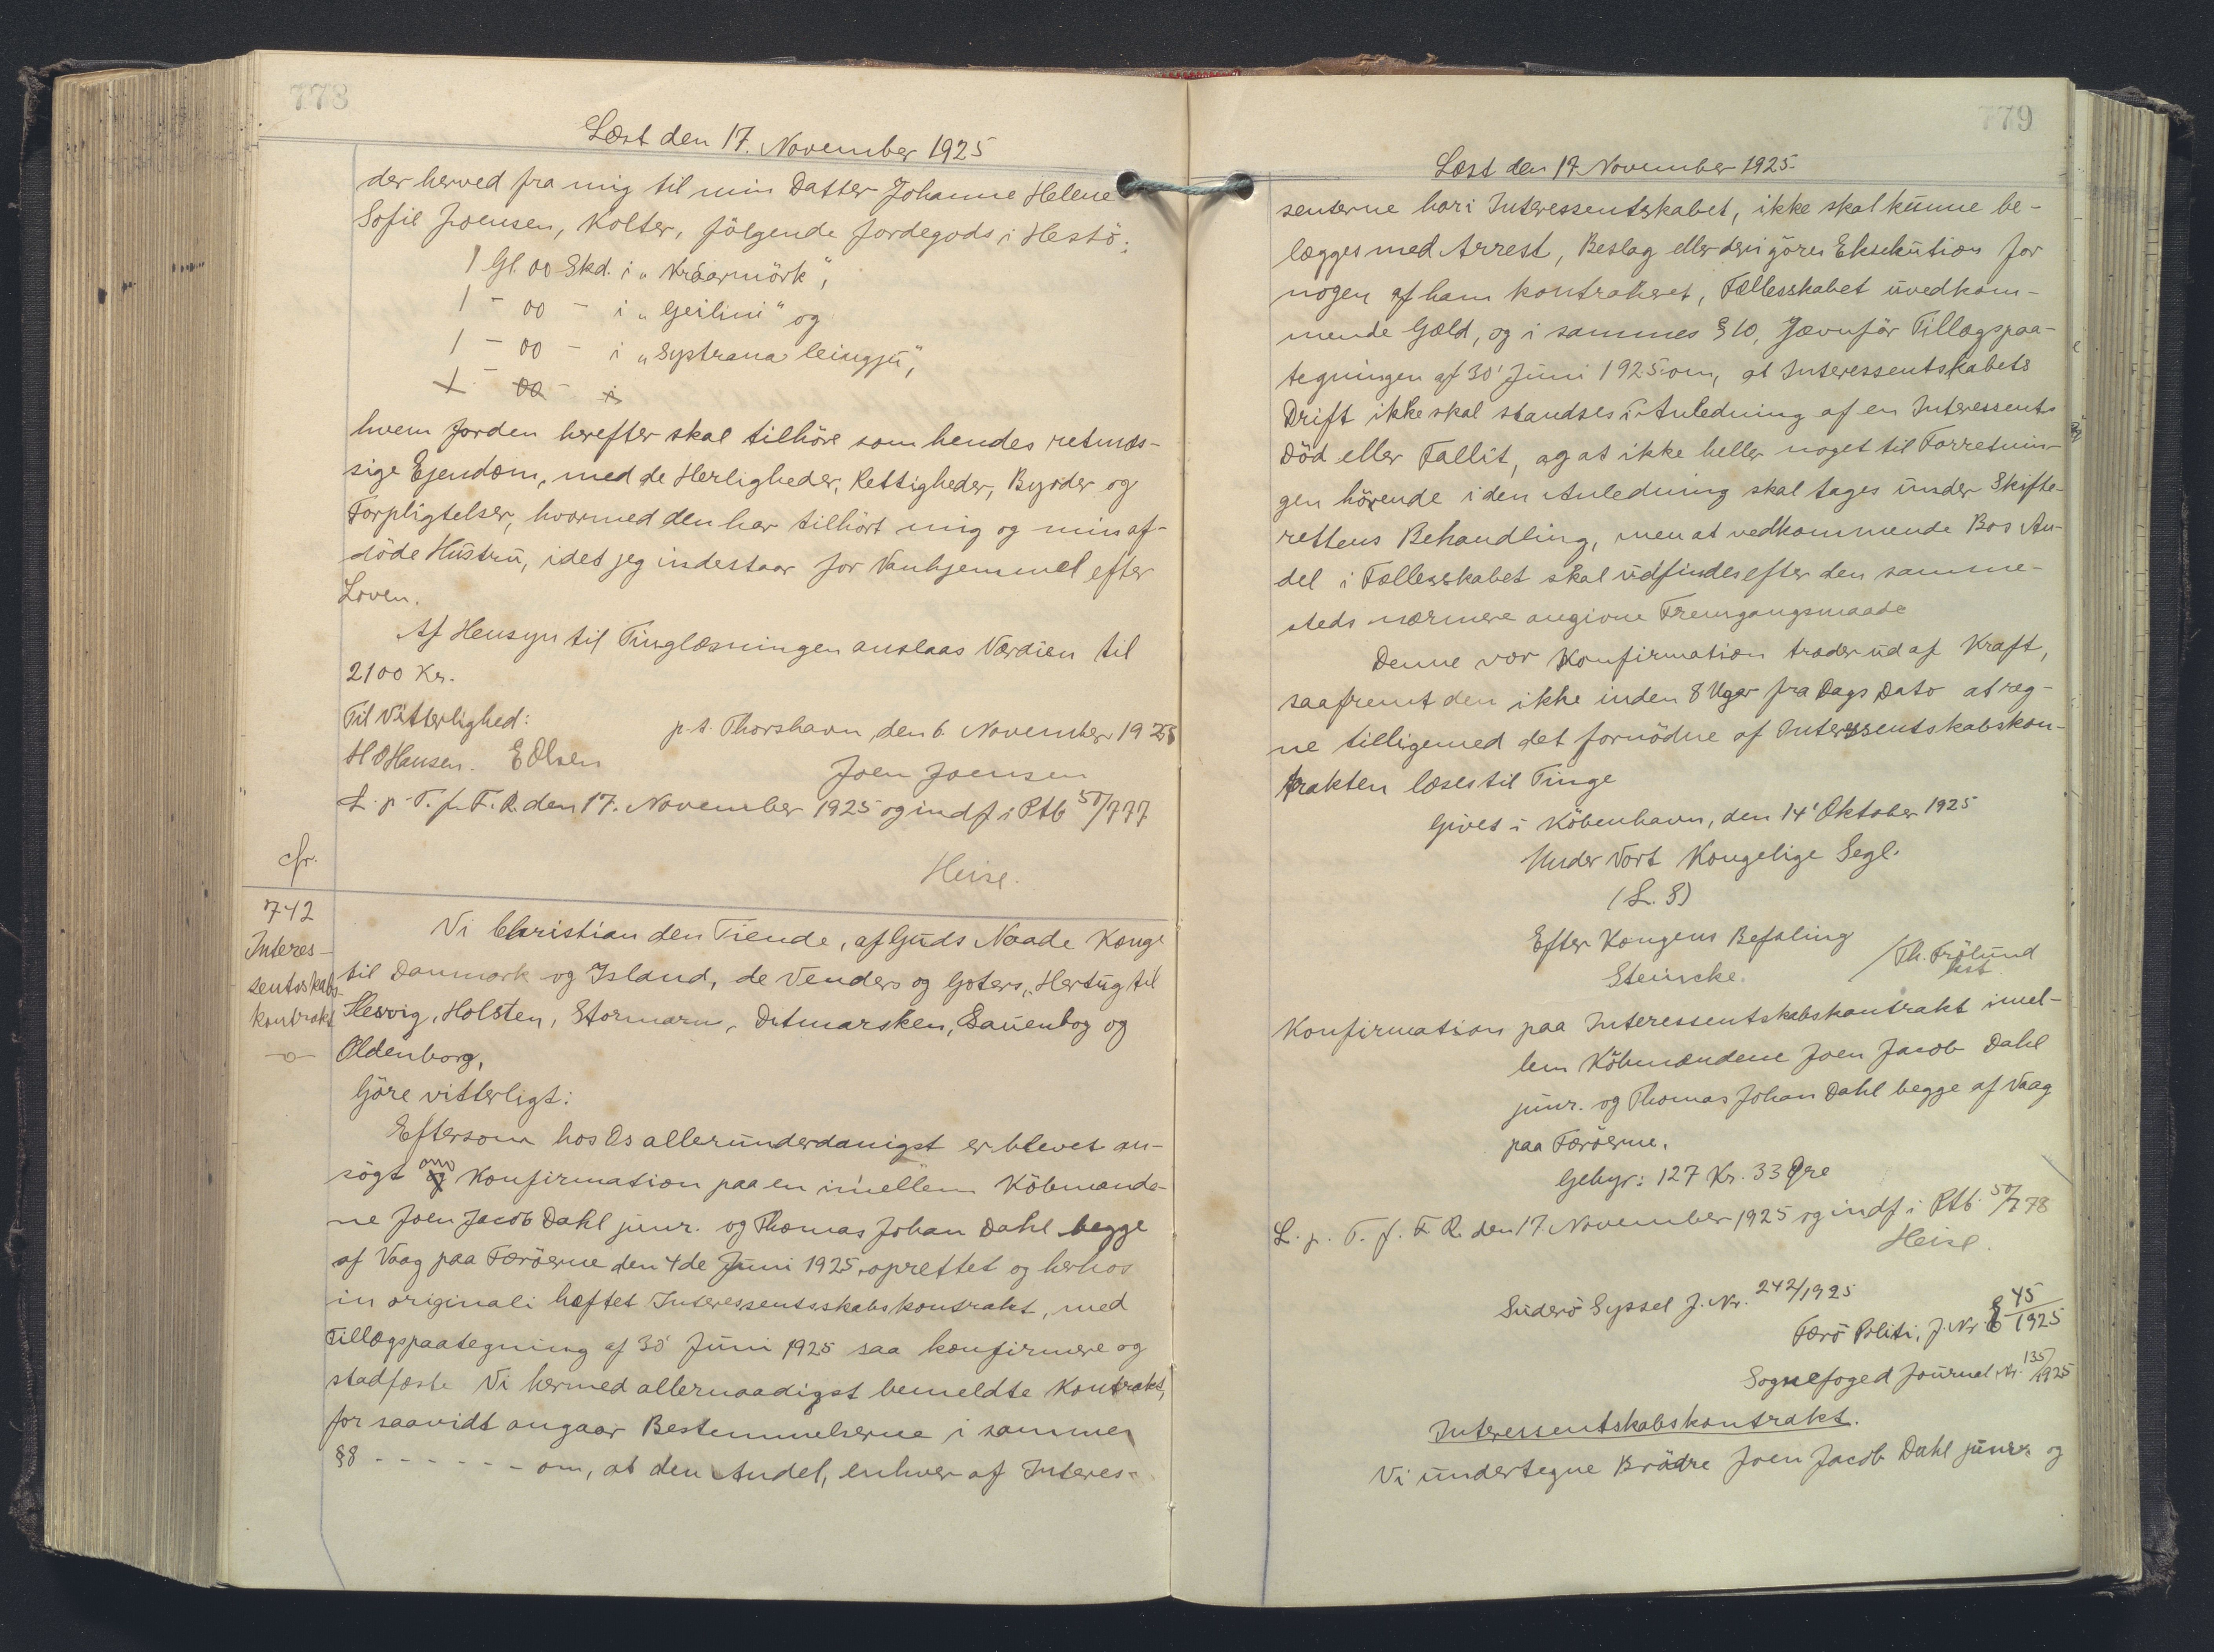 778
Læst den 17. November 1925
der herved fra mig til min Datter Johanne Helene
Sofie Joensen, Kolter, fölgende Jordegods i Hestö:
1 Gl. 00 Skd. i „Kráarmörk",
1 - 00 - i „Geilini" og
1 - 00 - i „Systrana leingju",
1 - 00 - i
hvem Jorden herefter skal tilhöre som hendes retmæs-
sige Ejendom, med de Herligheder, Rettigheder, Byrder og
Forpligtelser, hvormed den har tilhört mig og min af-
döde Hustru, idet jeg indestaar for Vanhjemmel efter
Loven.
Af Hensyn til Tinglæsningen anslaas Værdien til
2100 Kr.
Til Vitterlighed:
p.t. Thorshavn, den 6. November 1925
H O Hansen. E Olsen
Joen Joensen
L. p. T. f. F. R. den 17. November 1925 og indf i Ptb 50/777
Heise.
cfr.
742
Interes-
sentsskabs-
kontrakt
-o-
Vi Christian den Tiende, af Guds Naade Konge
til Danmark og Island, de Venders og Goters, Hertug til
Slesvig, Holsten, Stormarn, Ditmarsken, Lauenbog og
Oldenborg,
Göre vitterligt:
Eftersom hos Os allerunderdanigst er blevet an-
sögt om Konfirmation paa en imellem Köbmænde-
ne Joen Jacob Dahl junr. og Thomas Johan Dahl begge
af Vaag paa Færöerne den 4de Juni 1925 oprettet og herhos
in originali hæftet Interessentsskabskontrakt, med
Tillægspaategning af 30' Juni 1925 saa konfirmere og
stadfæste Vi hermed allernaadigst bemeldte Kontrakt,
for saavidt angaar Bestemmelserne i sammes
§8 - - - - - - om, at den Andel, enhver af Interes-
779
Læst den 17 November 1925.
senterne har i Interessentskabet, ikke skal kunne be-
lægges med Arrest, Beslag eller deri göres Eksekution for
nogen af ham kontraheret, Fællesskabet uvedkom-
mende Gæld, og i sammes § 10, Jævnför Tillægspaa-
tegningen af 30' Juni 1925 om, at Interessentskabets
Drift ikke skal standses i Anledning af en Interessents
Död eller Fallit, og at ikke heller noget til Forretnin-
gen hörende i den Anledning skal tages under Skifte-
rettens Behandling, men at vedkommende Bos An-
del i Fællesskabet skal udfindes efter den samme-
steds nærmere angivne Fremgangsmaade
Denne vor Konfirmation træder ud af Kraft,
saafremt den ikke inden 8 Uger fra Dags Dato at reg-
ne tilligemed det fornödne af Interessentskabskon-
trakten læses til Tinge
Givet i Köbenhavn, den 14' Oktober 1925
Under Vort Kongelige Segl.
(L. S)
Efter Kongens Befaling
Steincke.
/Th. Frölund
kst.
Konfirmation paa Interessentskabskontrakt imel-
lem Köbmændene Joen Jacob Dahl
junr. og Thomas Johan Dahl begge af Vaag
paa Færöerne.
Gebyr: 127 Kr. 33 Øre
L. p. T. f. F. R. den 17. November 1925 og indf i Ptb. 50/778
Heise.
Suderö Syssel J. Nr. 242/1925
Færö Politi, J. Nr. 45/1925
Sognefoged Journal Nr. 135/1925
Interessentskabskontrakt.
Vi undertegne Brödre Joen Jacob Dahl junr. og